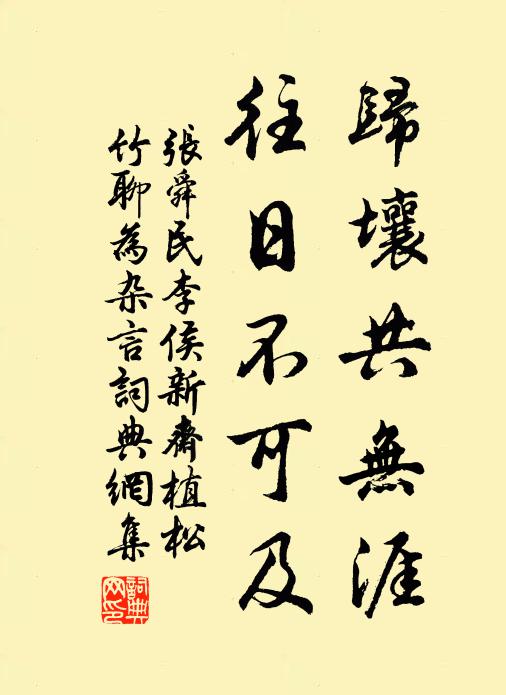 歸壤共無涯
往日不可及
張舜民李侯新齋植松
竹聊為杂言詞典網集
詞典
网印